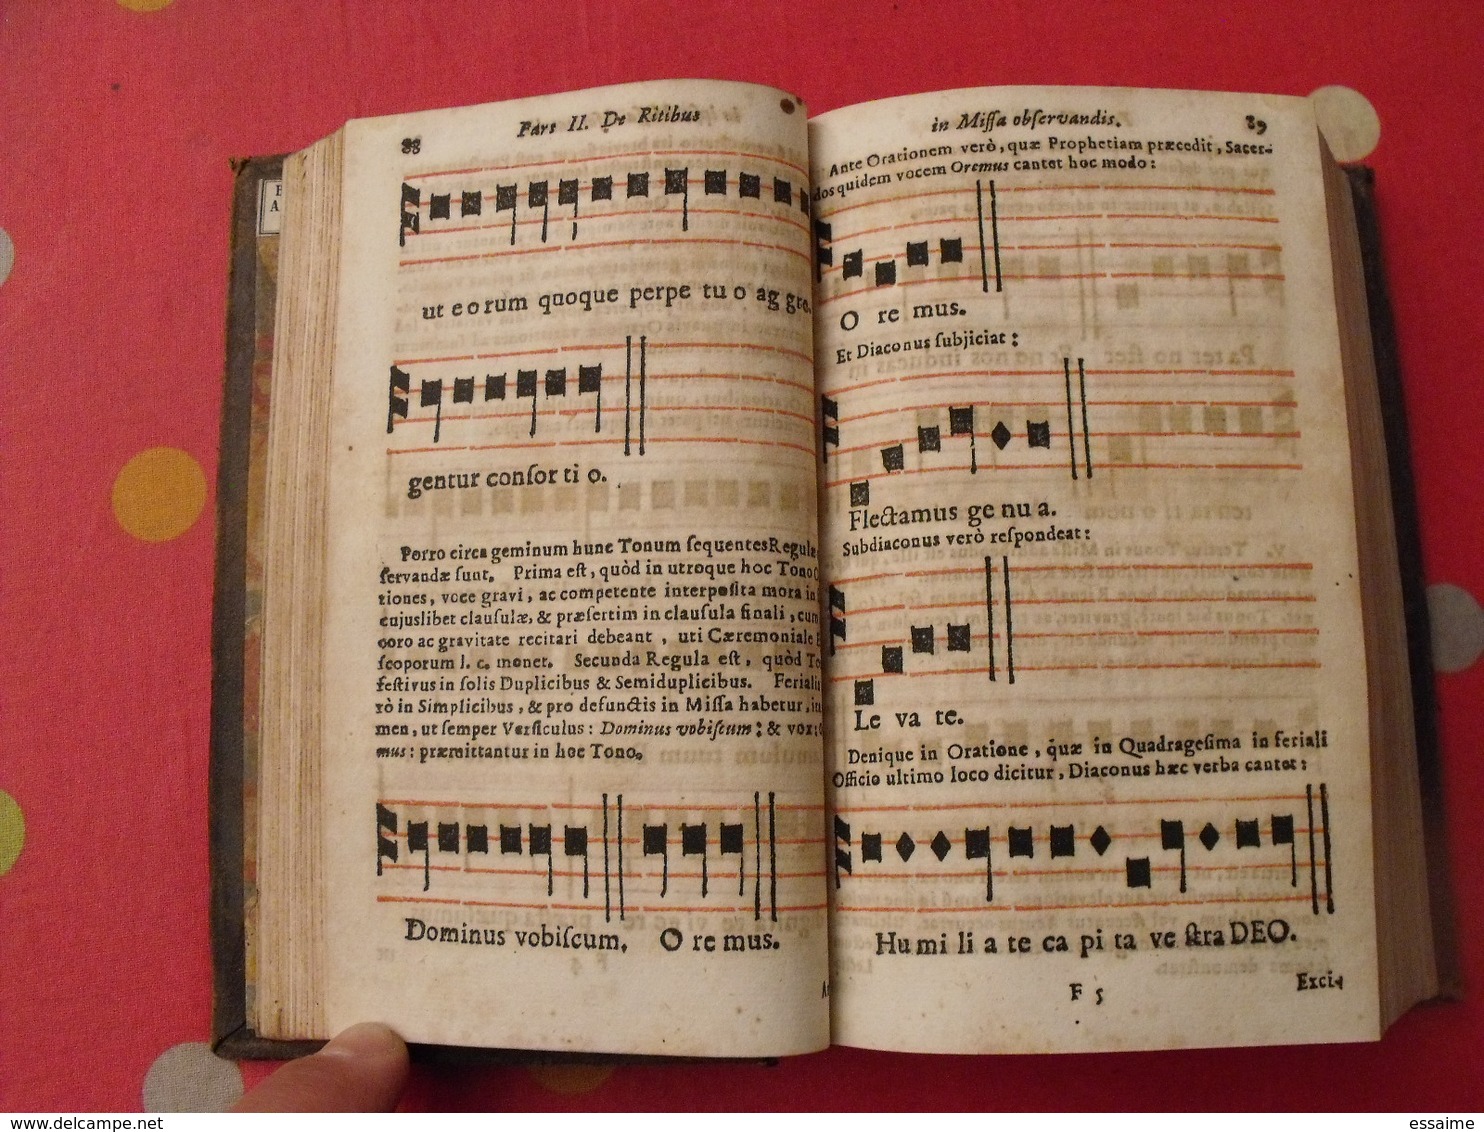 88 Pars II. De Ritibus
ut eorum quoque perpe tu o ag gre.
gentur conſor ti o.
Porro circa geminum hunc Tonum ſequentes Regulæ
ſervandæ ſunt. Prima eſt, quòd in utroque hoc Tono
tiones, voce gravi, ac competente interpoſita mora in
cujuslibet clauſulæ, & præſertim in clauſula finali, cum
coro ac gravitate recitari debeant, uti Cæremoniale
ſcoporum l. c. monet. Secunda Regula eſt, quòd To
feſtivus in ſolis Duplicibus & Semiduplicibus. Ferialis
rò in Simplicibus, & pro defunctis in Miſſa habetur, in
men, ut ſemper Verſiculus: Dominus vobiſcum: & vox:
mus: præmittantur in hoc Tono.
Dominus vobiſcum. O re mus.
in Miſſa obſervandis. 89
Ante Orationem verò, quæ Prophetiam præcedit, Sacer-
dos quidem vocem Oremus cantet hoc modo:
O re mus.
Et Diaconus ſubjiciat:
Flectamus ge nu a.
Subdiaconus verò reſpondeat:
Le va te.
Denique in Oratione, quæ in Quadrageſima in feriali
Officio ultimo loco dicitur, Diaconus hæc verba cantet:
Hu mi li a te ca pi ta ve ſtra DEO.
F 5 Exci-
delcampe.net
essaime